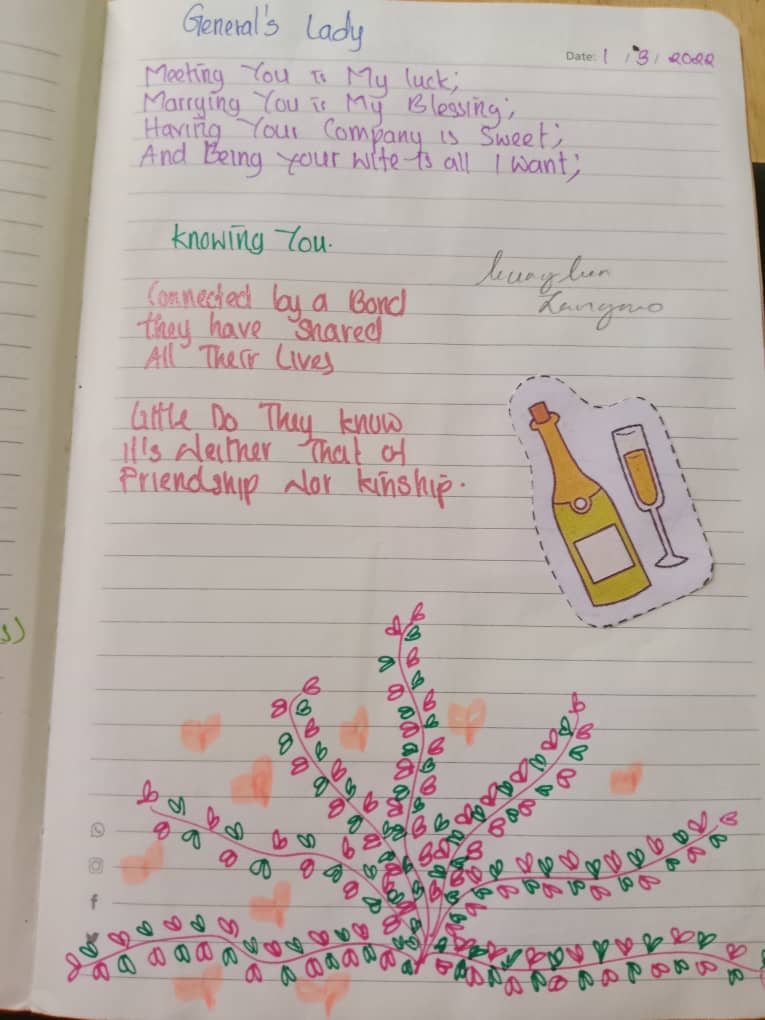 General's Lady
Date: 1 / 3 / 2022
Meeting You Is My luck;
Marrying You is My Blessing;
Having Your Company is Sweet;
And Being your wife is all I want;
Knowing You.
Connected by a Bond
they have shared
All Their Lives
Little Do They know
It's Neither That of
Friendship Nor kinship.